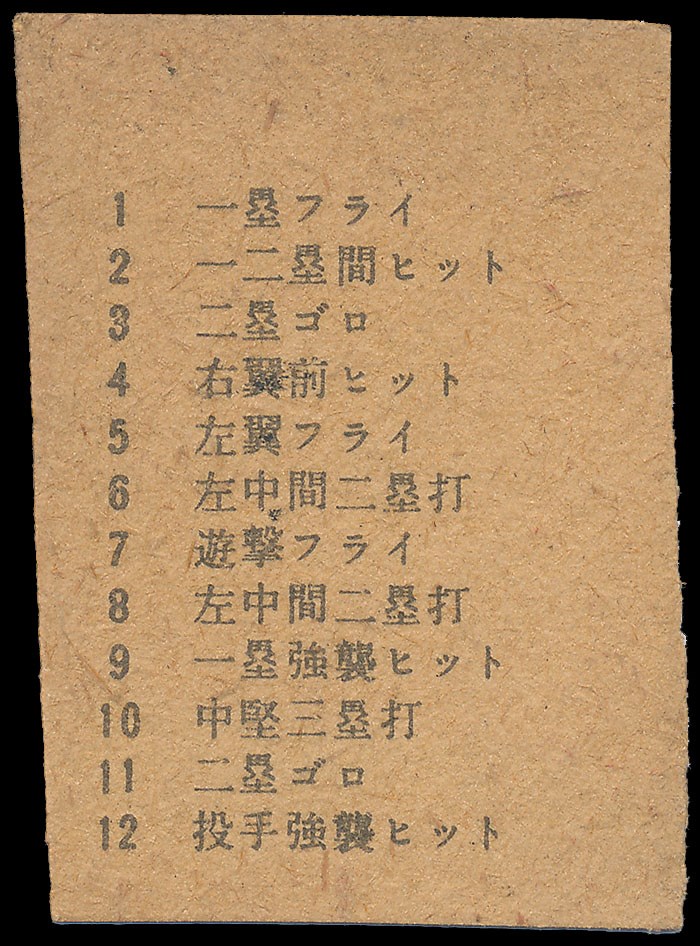 1 一塁フライ
2 一二塁間ヒット
3 二塁ゴロ
4 右翼前ヒット
5 左翼フライ
6 左中間二塁打
7 遊撃フライ
8 左中間二塁打
9 一塁強襲ヒット
10 中堅三塁打
11 二塁ゴロ
12 投手強襲ヒット